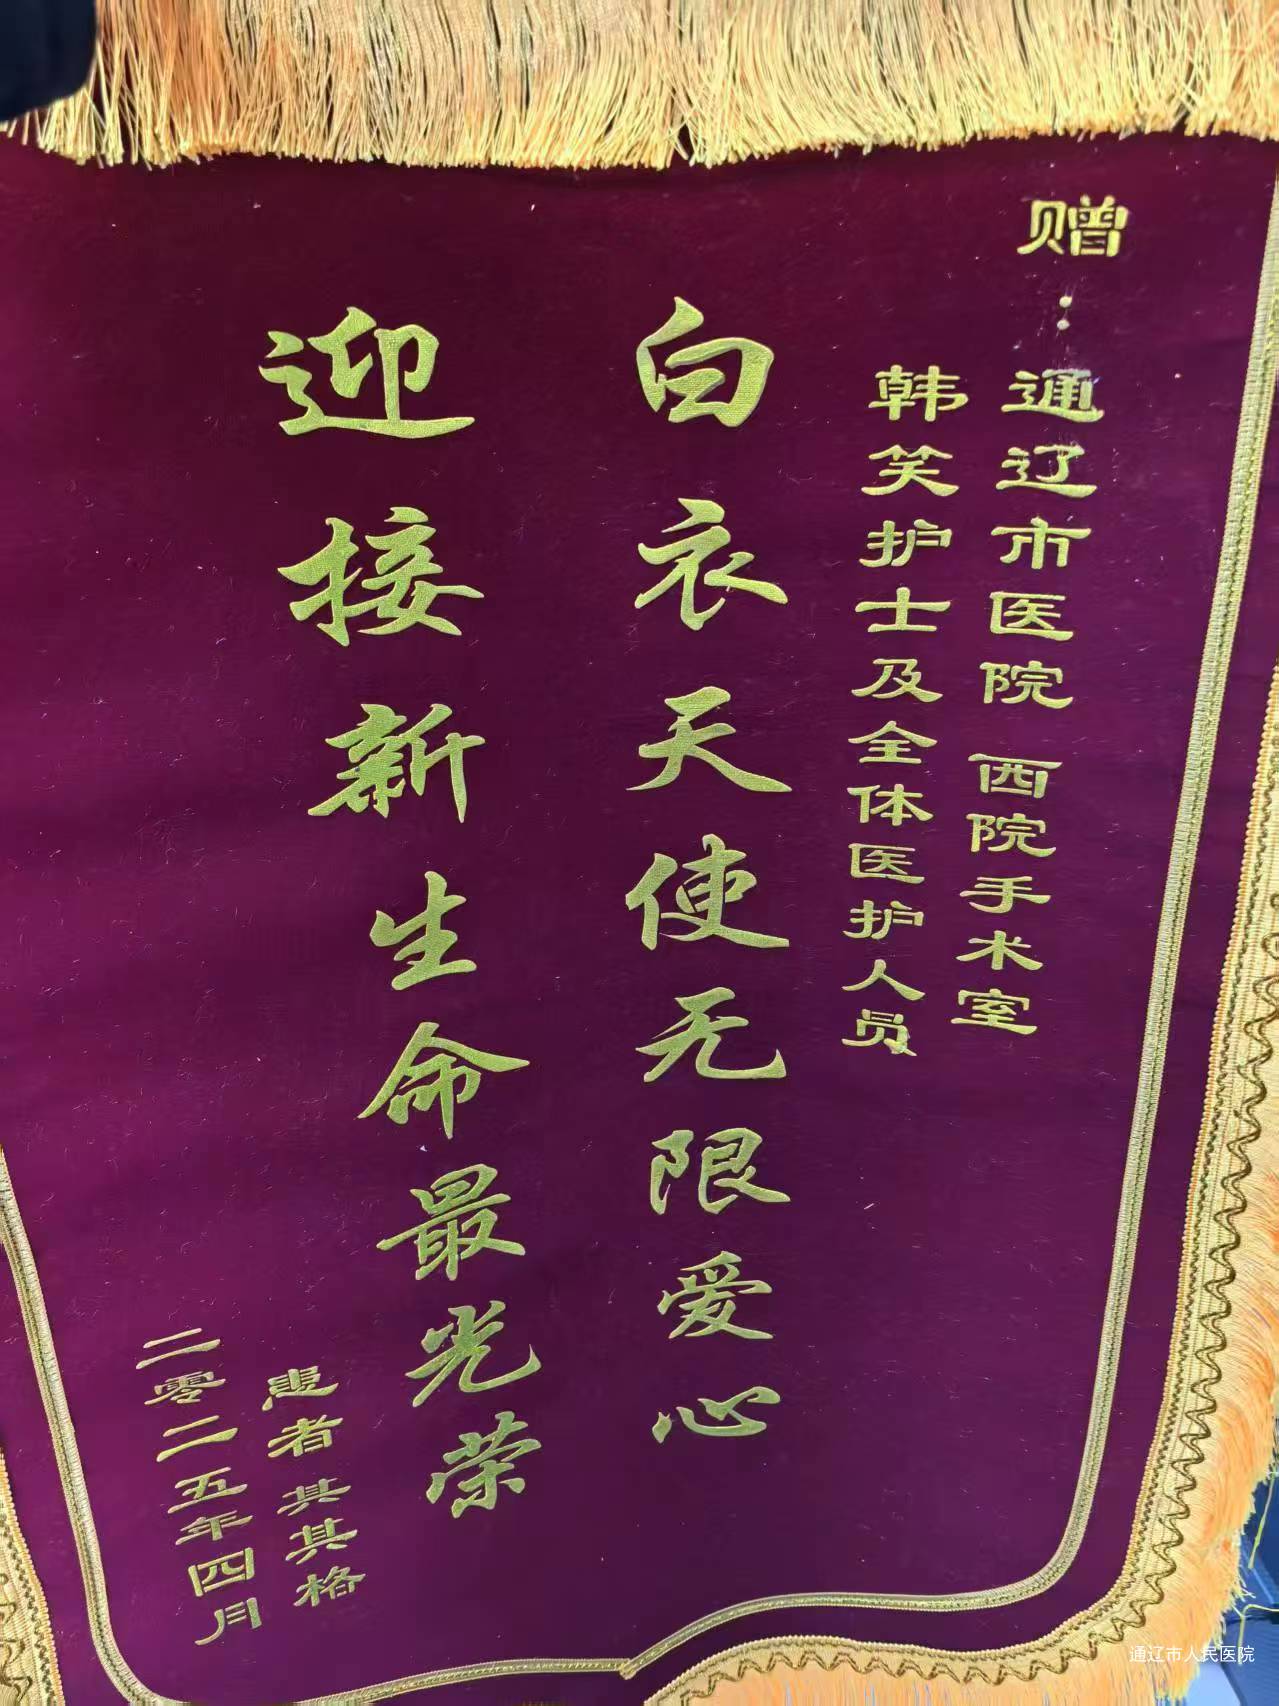 赠：
通辽市医院 西院手术室
韩笑护士及全体医护人员
白衣天使无限爱心
迎接新生命最光荣
患者 其其格
二零二五年四月
通辽市人民医院